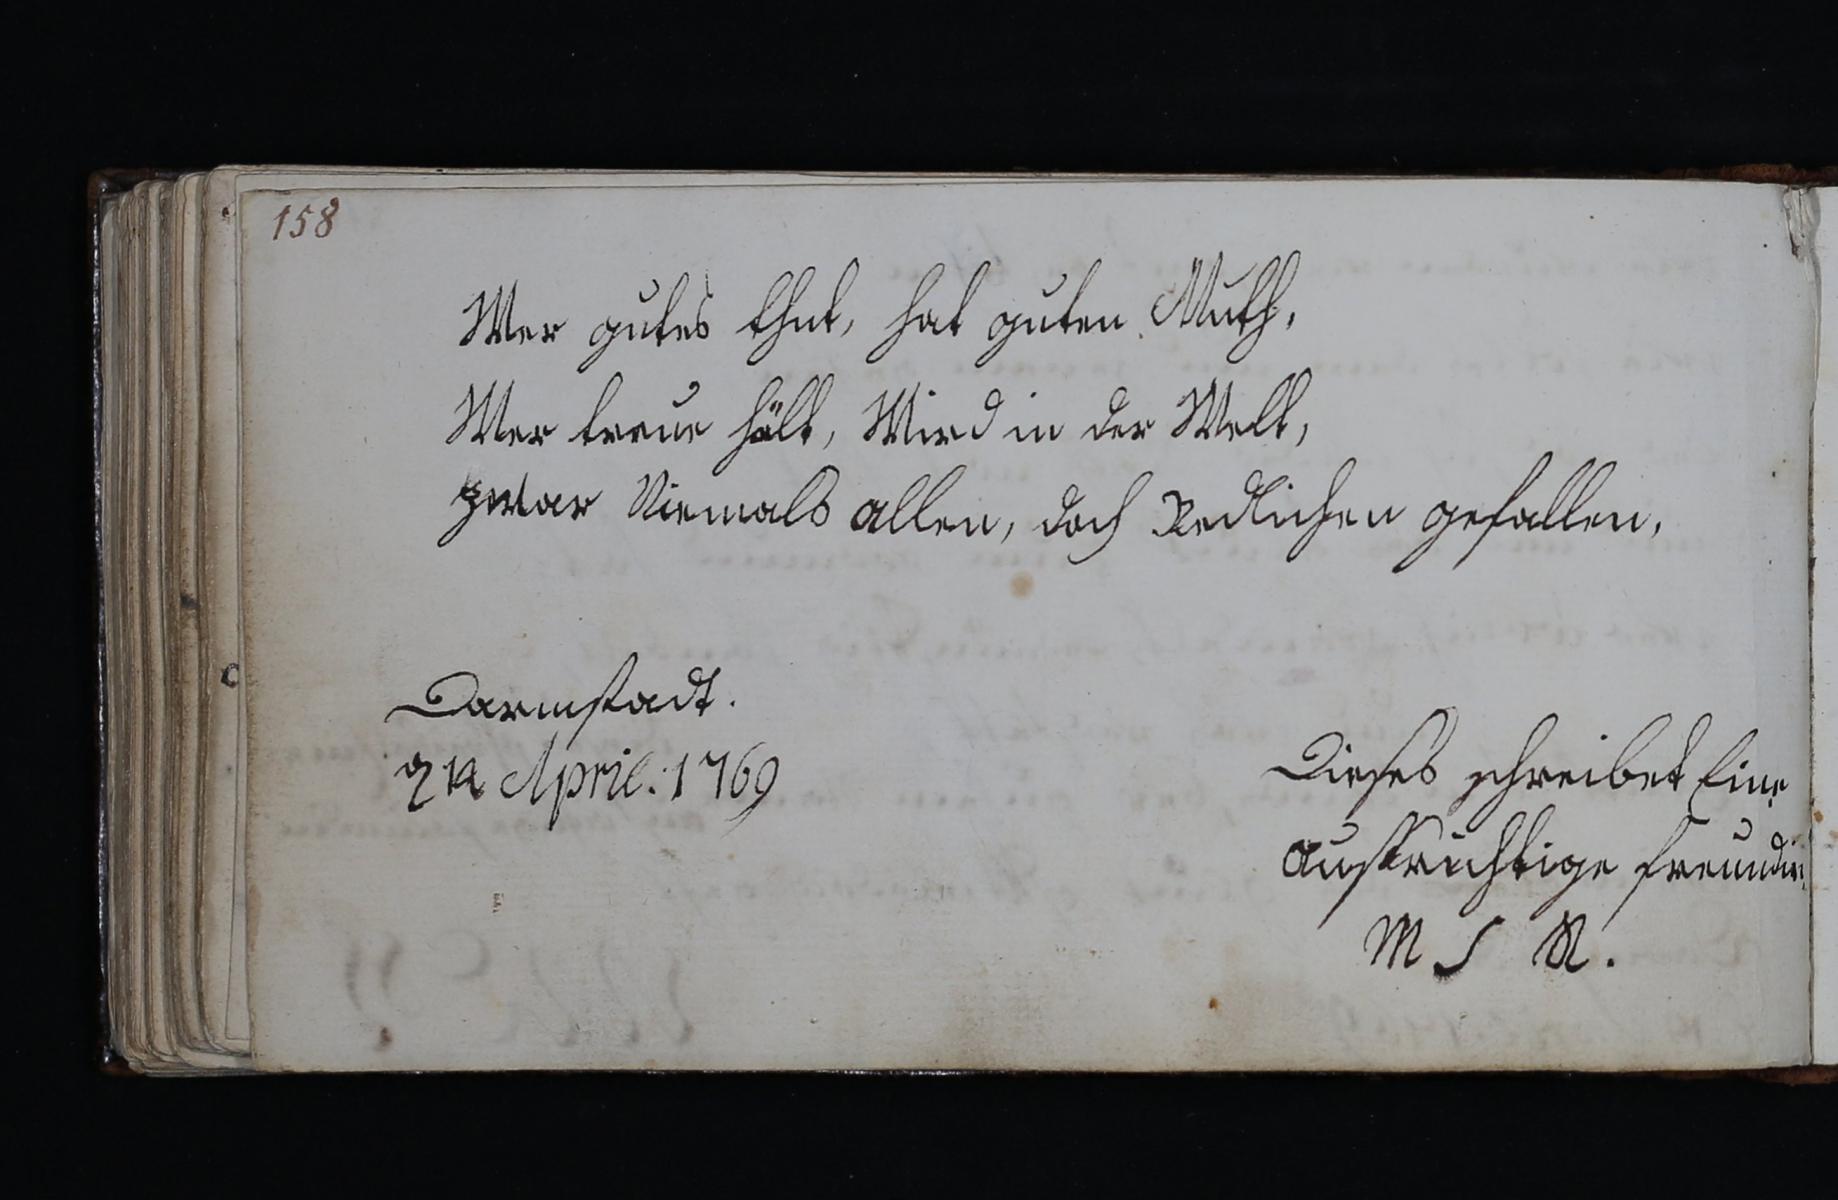 158
Wer gutes thut, hat guten Muth,
Wer treue hält, Wird in der Welt,
zwar Niemals allen, doch Redlichen gefallen,
Darmstadt.
April. 1769
Dieses schreibet Eine
auffrichtige freundin
M S R.